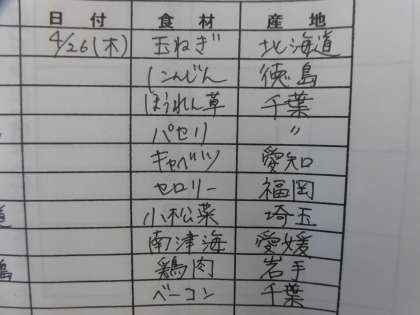 日付 食材 産地
4/26(木) 玉ねぎ 北海道
にんじん 徳島
ほうれん草 千葉
パセリ 〃
キャベツ 愛知
セロリー 福岡
小松菜 埼玉
南津海 愛媛
鶏肉 岩手
ベーコン 千葉